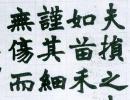 夫損之
如苗禾
謹其細
無傷而